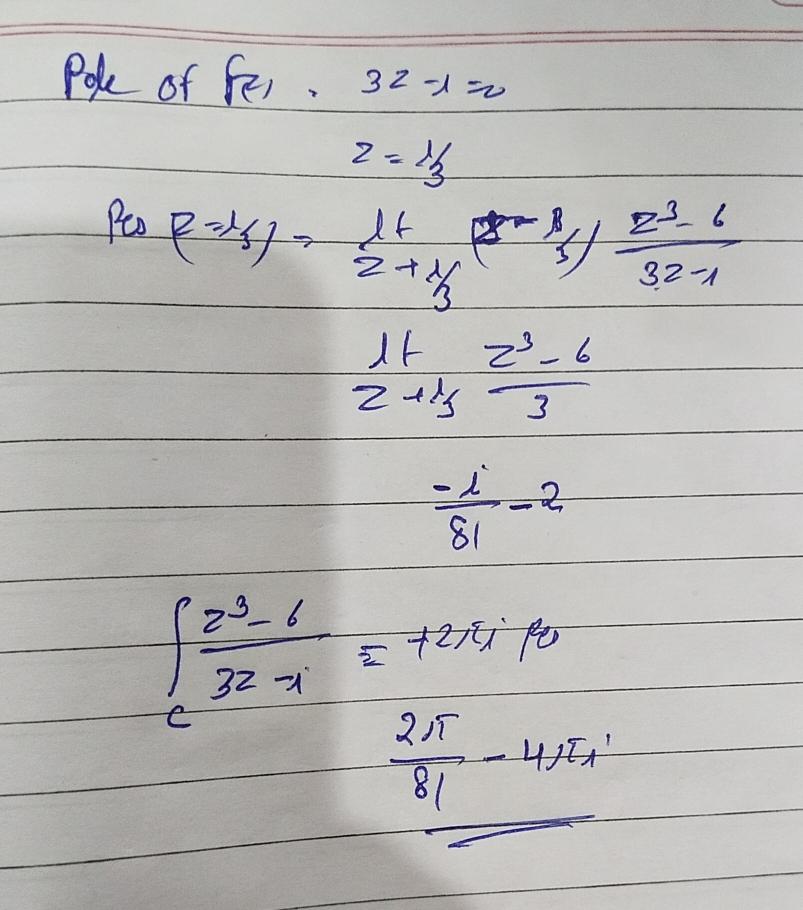 Pole of f(z), 3z-i=0
z = i/3
Res (z=i/3) = lt z→i/3 (z-i/3) z³-6/3z-i
lt z→i/3 z³-6/3
-i/81 - 2
∫c z³-6/3z-i = +2πi Res
2π/81 - 4πi